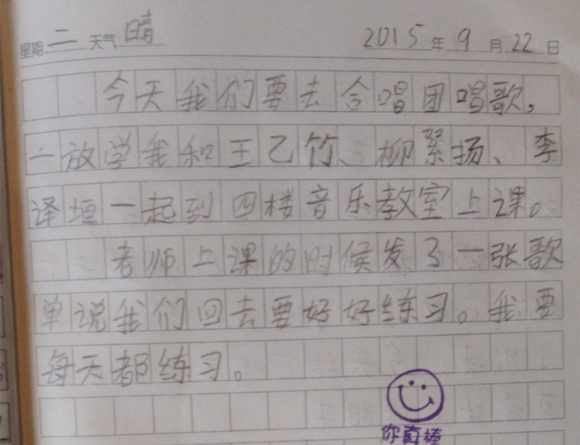 星期二 天气晴 2015年9月22日
今天我们要去合唱团唱歌,
一放学我和王乙竹、柳絮扬、李
译垣一起到四楼音乐教室上课。
老师上课的时候发了一张歌
单说我们回去要好好练习。我要
每天都练习。
你真棒